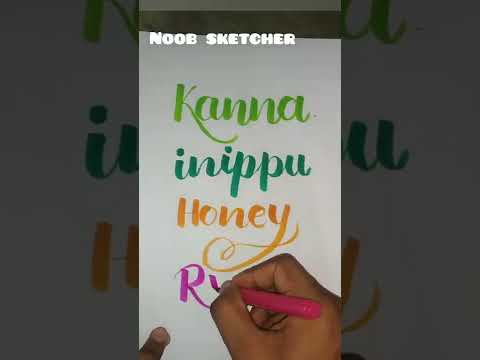 Noob sketcher
Kanna.
inippu
Honey